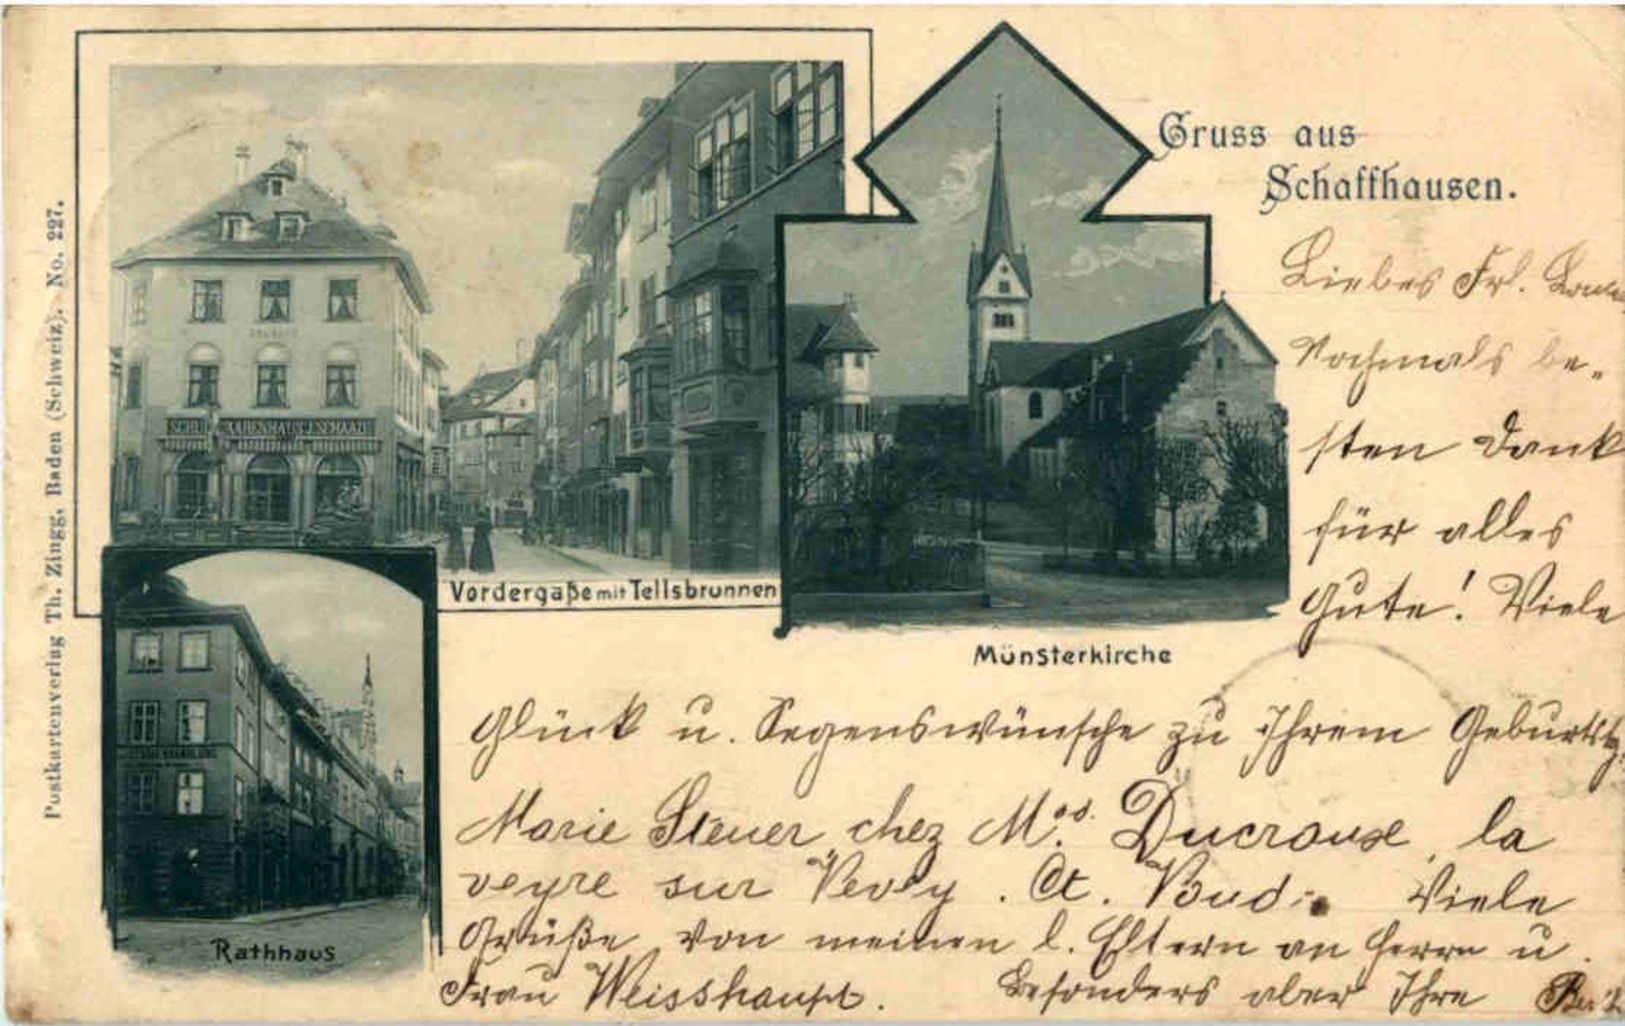 Gruss aus
Schaffhausen.
Postkartenverlag Th. Zingg, Baden (Schweiz). No. 227.
SCHUHWAARENHAUS J. SCHAAD
Vordergaße mit Tellsbrunnen
Münsterkirche
Rathhaus
Liebes Frl.
Nochmals be-
sten Dank
für alles
Gute! Viele
Glück u. Segenswünsche zu Ihrem Geburtstg.
Marie Steuer, chez M. Ducrouse, la
veyre sur Vevey. Ct. Vaud. Viele
Grüße von meinen l. Eltern an Herrn u.
Frau Weisshaupt. Besonders aber Ihre